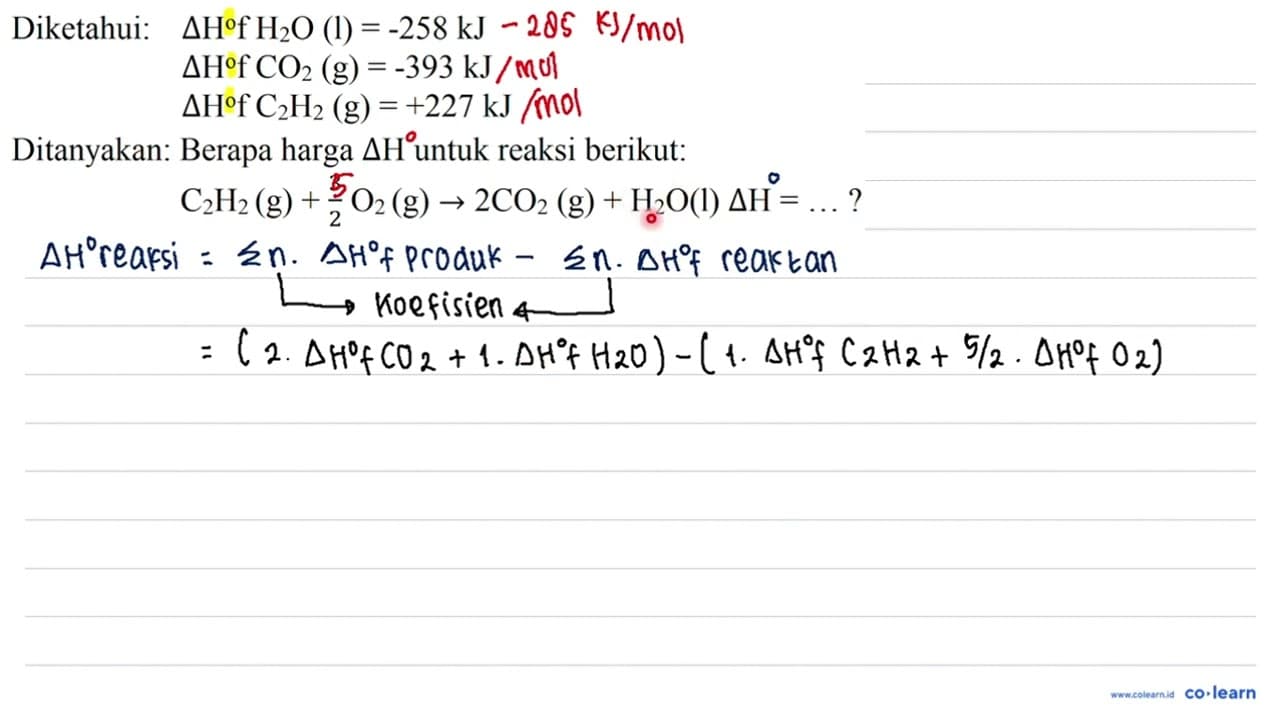 Diketahui: ΔHºf H₂O (l) = -258 kJ - 285 KJ/mol
ΔHºf CO₂ (g) = -393 kJ /mol
ΔHºf C₂H₂ (g) = +227 kJ /mol
Ditanyakan: Berapa harga ΔHº untuk reaksi berikut:
C₂H₂ (g) + 5/2 O₂ (g) → 2CO₂ (g) + H₂O(l) ΔHº = … ?
ΔHº reaksi = Σn. ΔHºf produk - Σn. ΔHºf reaktan
Koefisien
= (2. ΔHºf CO2 + 1. ΔHºf H2O) - (1. ΔHºf C2H2 + 5/2 . ΔHºf O2)
www.colearn.id co·learn